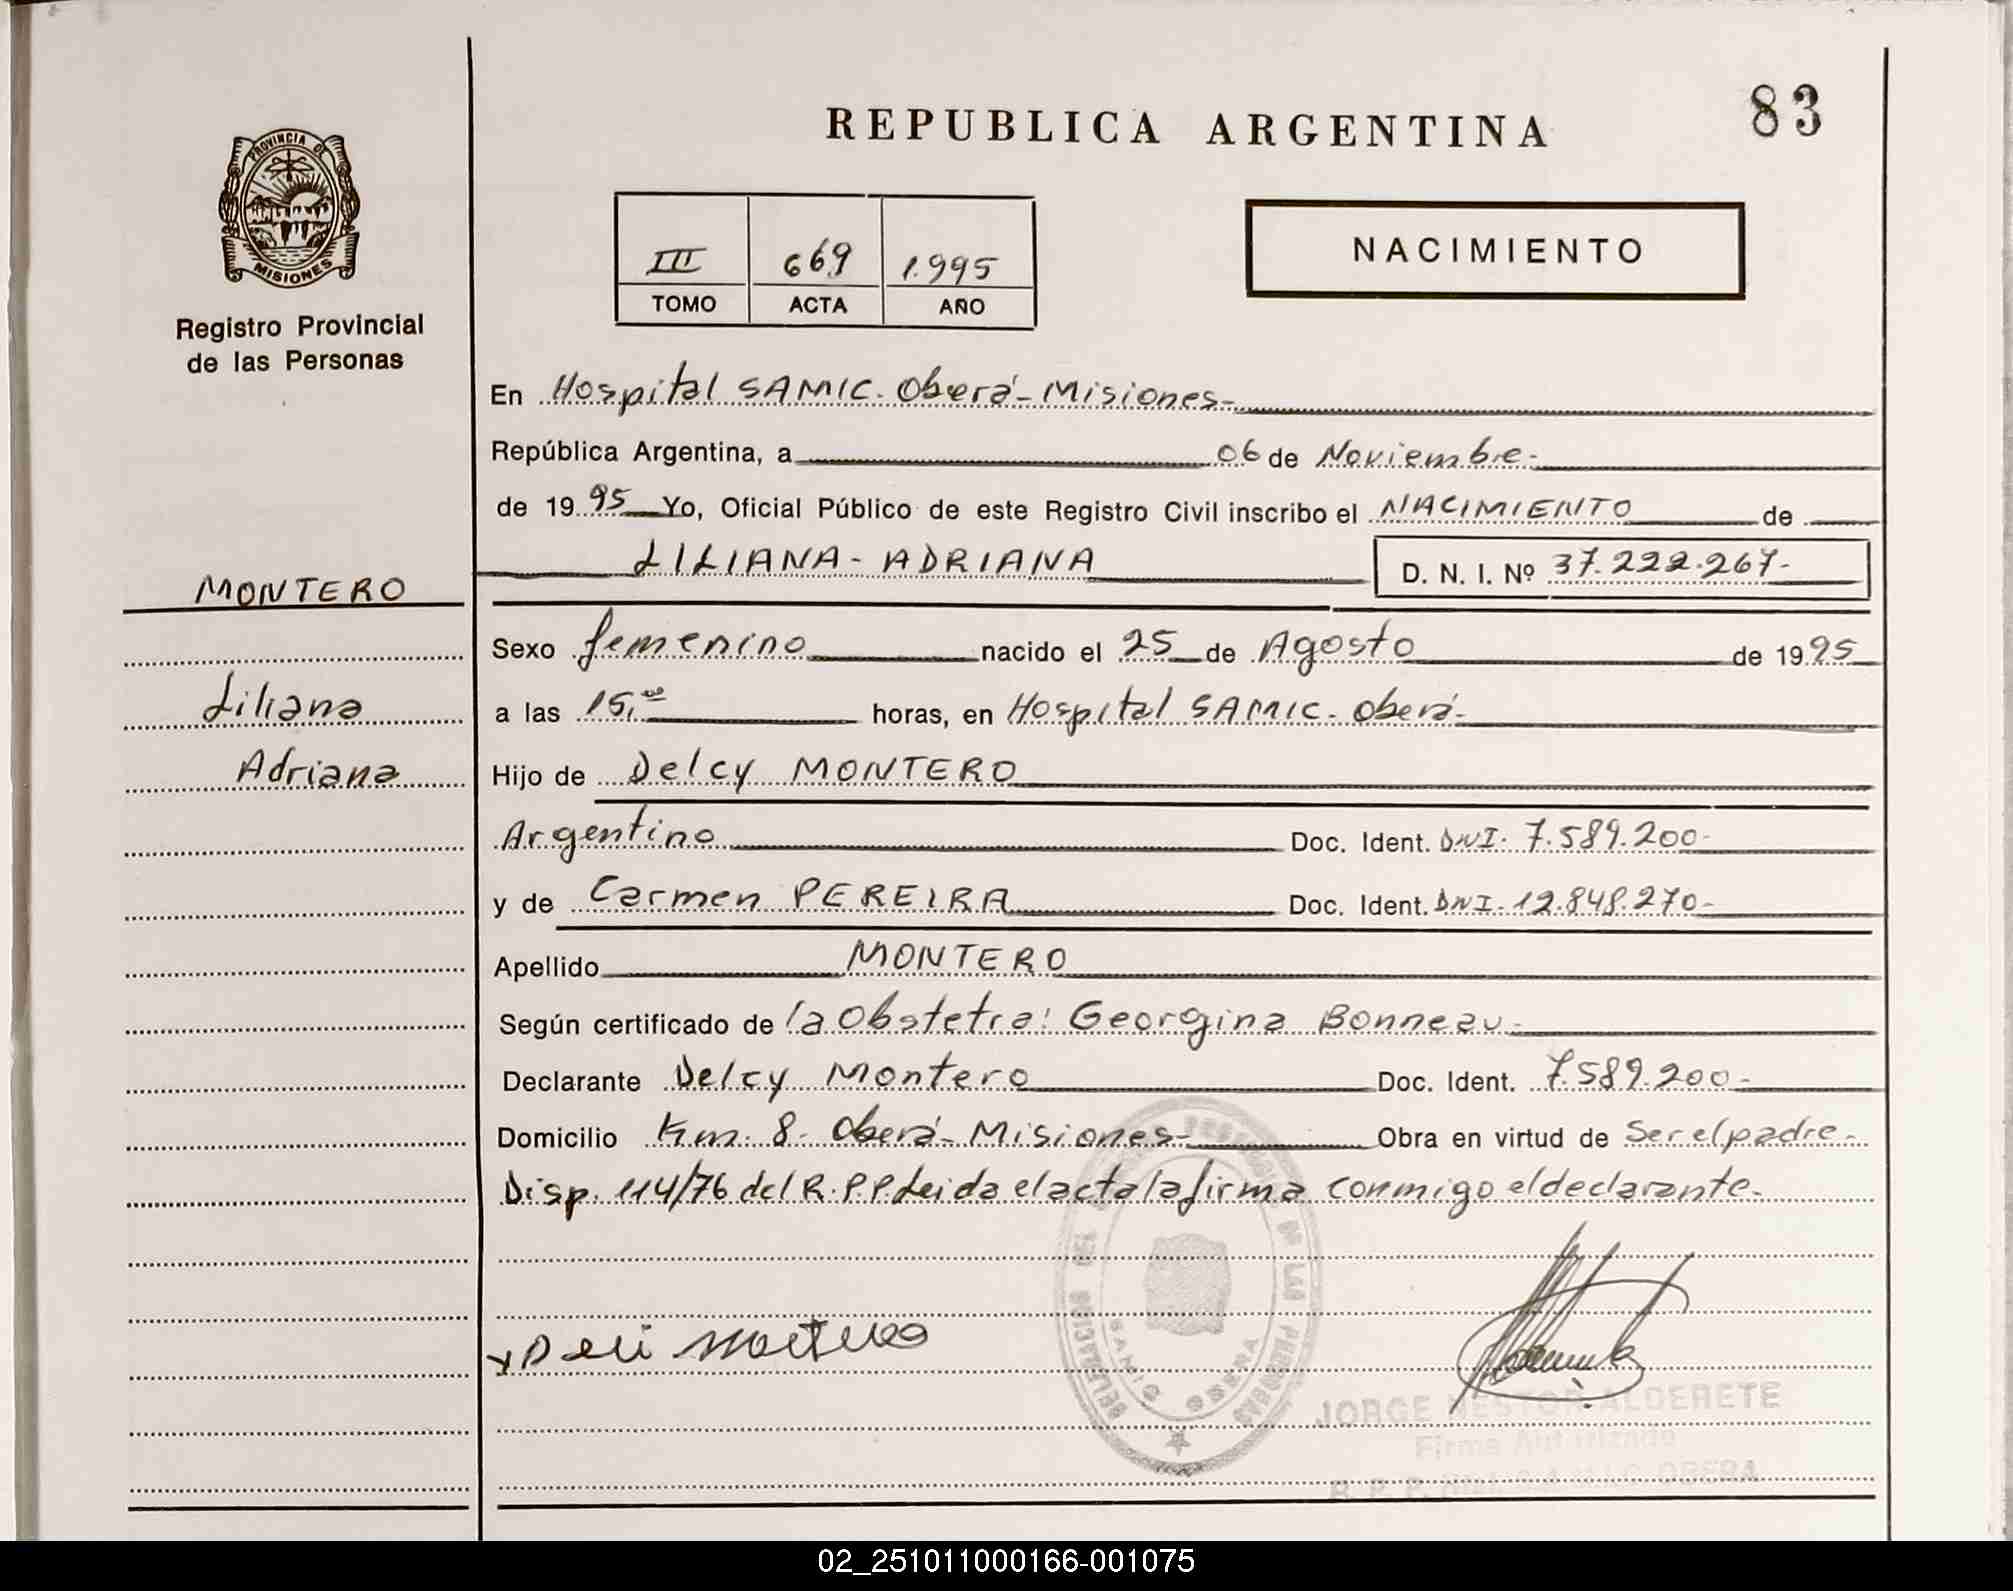 83
REPUBLICA ARGENTINA
PROVINCIA DE
MISIONES
Registro Provincial
de las Personas
III 669 1.995
TOMO ACTA AÑO
NACIMIENTO
En Hospital SAMIC. Oberá - Misiones -
República Argentina, a 06 de Noviembre -
de 1995 Yo, Oficial Público de este Registro Civil inscribo el NACIMIENTO de
LILIANA - ADRIANA D. N. I. Nº 37.222.267-
MONTERO
Liliana
Adriana
Sexo femenino nacido el 25 de Agosto de 1995
a las 15,00 horas, en Hospital SAMIC - Oberá -
Hijo de Delcy MONTERO
Argentino Doc. Ident. DNI. 7.589.200-
y de Carmen PEREIRA Doc. Ident. DNI. 12.848.270-
Apellido MONTERO
Según certificado de la Obstetra: Georgina Bonneau -
Declarante Delcy Montero Doc. Ident. 7.589.200-
Domicilio Km. 8 - Oberá - Misiones - Obra en virtud de Ser el padre -
Disp. 114/76 del R.P.P. Leida el acta la firma conmigo el declarante.
x Deli Montero
SAMIC OBERA
JORGE NESTOR ALDERETE
Firma Autorizado
R. P. P. Htal. S.A.M.I.C. OBERA
02_251011000166-001075